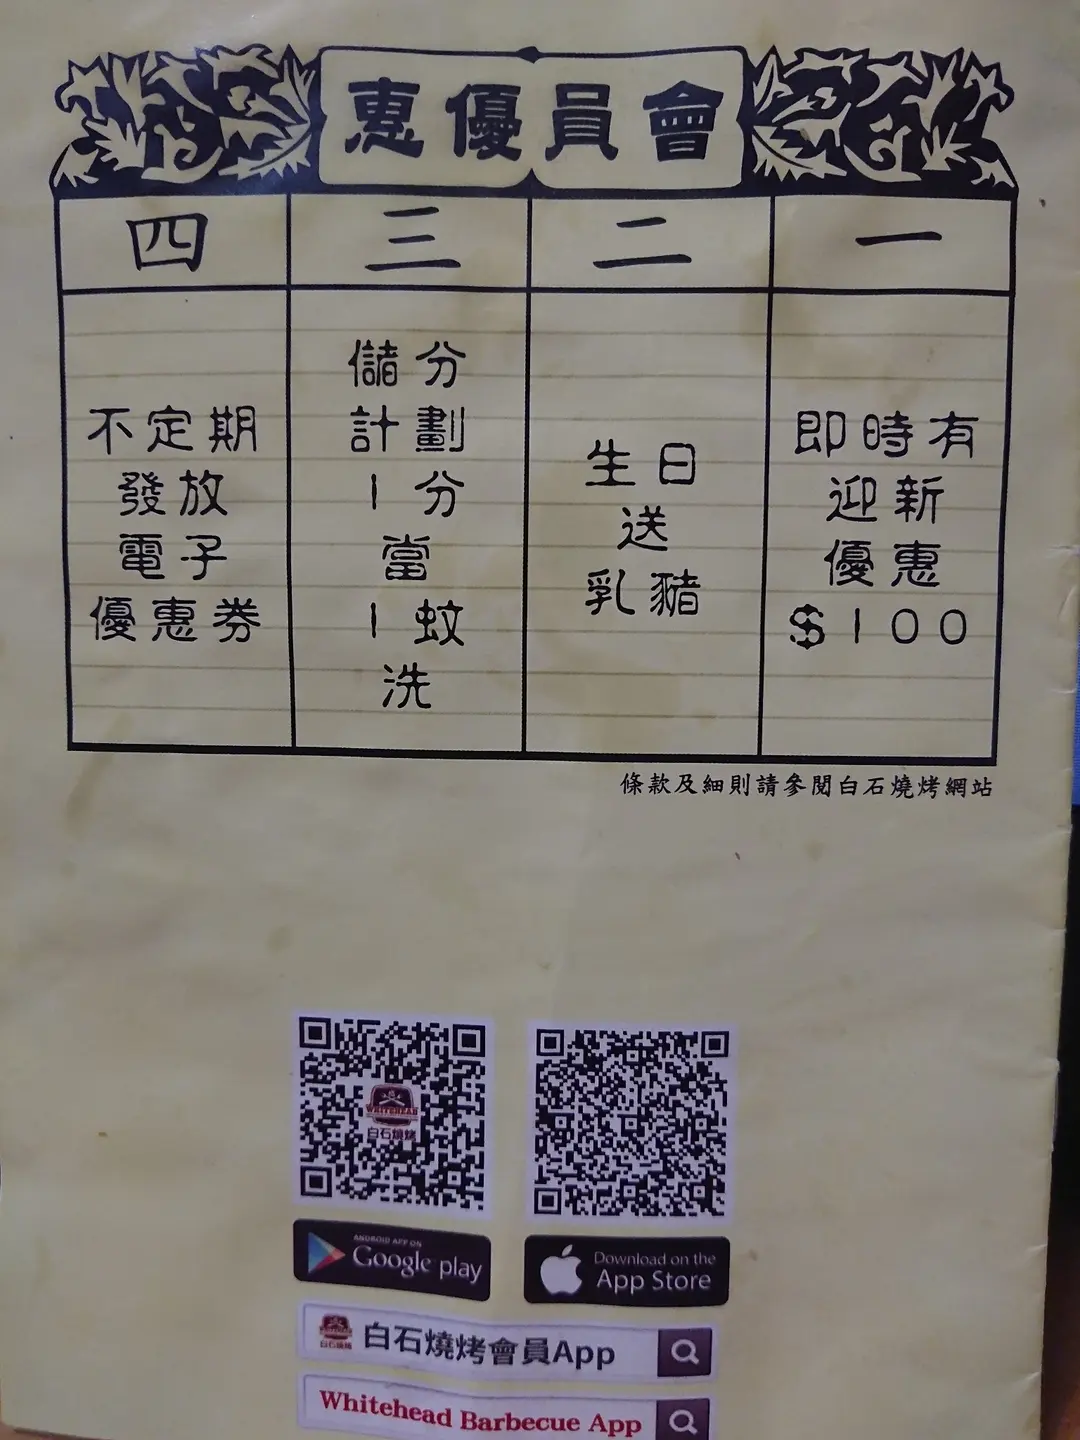 會員優惠
一
即時有
迎新
優惠
$100
二
生日
送
乳豬
三
儲分
計劃
1分
當
1蚊
洗
四
不定期
發放
電子
優惠券
條款及細則請參閱白石燒烤網站
WHITEHEAD
白石燒烤
ANDROID APP ON
Google play
Download on the
App Store
白石燒烤會員App
Whitehead Barbecue App